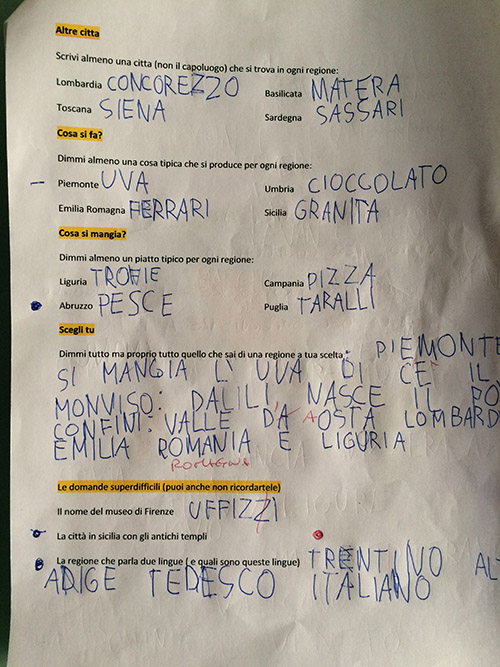 Altre citta
Scrivi almeno una citta (non il capoluogo) che si trova in ogni regione:
Lombardia CONCOREZZO Basilicata MATERA
Toscana SIENA Sardegna SASSARI
Cosa si fa?
Dimmi almeno una cosa tipica che si produce per ogni regione:
Piemonte UVA Umbria CIOCCOLATO
Emilia Romagna FERRARI Sicilia GRANITA
Cosa si mangia?
Dimmi almeno un piatto tipico per ogni regione:
Liguria TROFIE Campania PIZZA
Abruzzo PESCE Puglia TARALLI
Scegli tu
Dimmi tutto ma proprio tutto quello che sai di una regione a tua scelta: PIEMONTE
SI MANGIA L'UVA DI C'È IL
MONVISO: DALILI NASCE IL PO
CONFINI: VALLE DA AOSTA LOMBARD
EMILIA ROMANIA E LIGURIA
ROMAGNA
Le domande superdifficili (puoi anche non ricordartele)
Il nome del museo di Firenze UFFIZZI
La città in sicilia con gli antichi templi
La regione che parla due lingue ( e quali sono queste lingue) TRENTINO AL
ADIGE TEDESCO ITALIANO